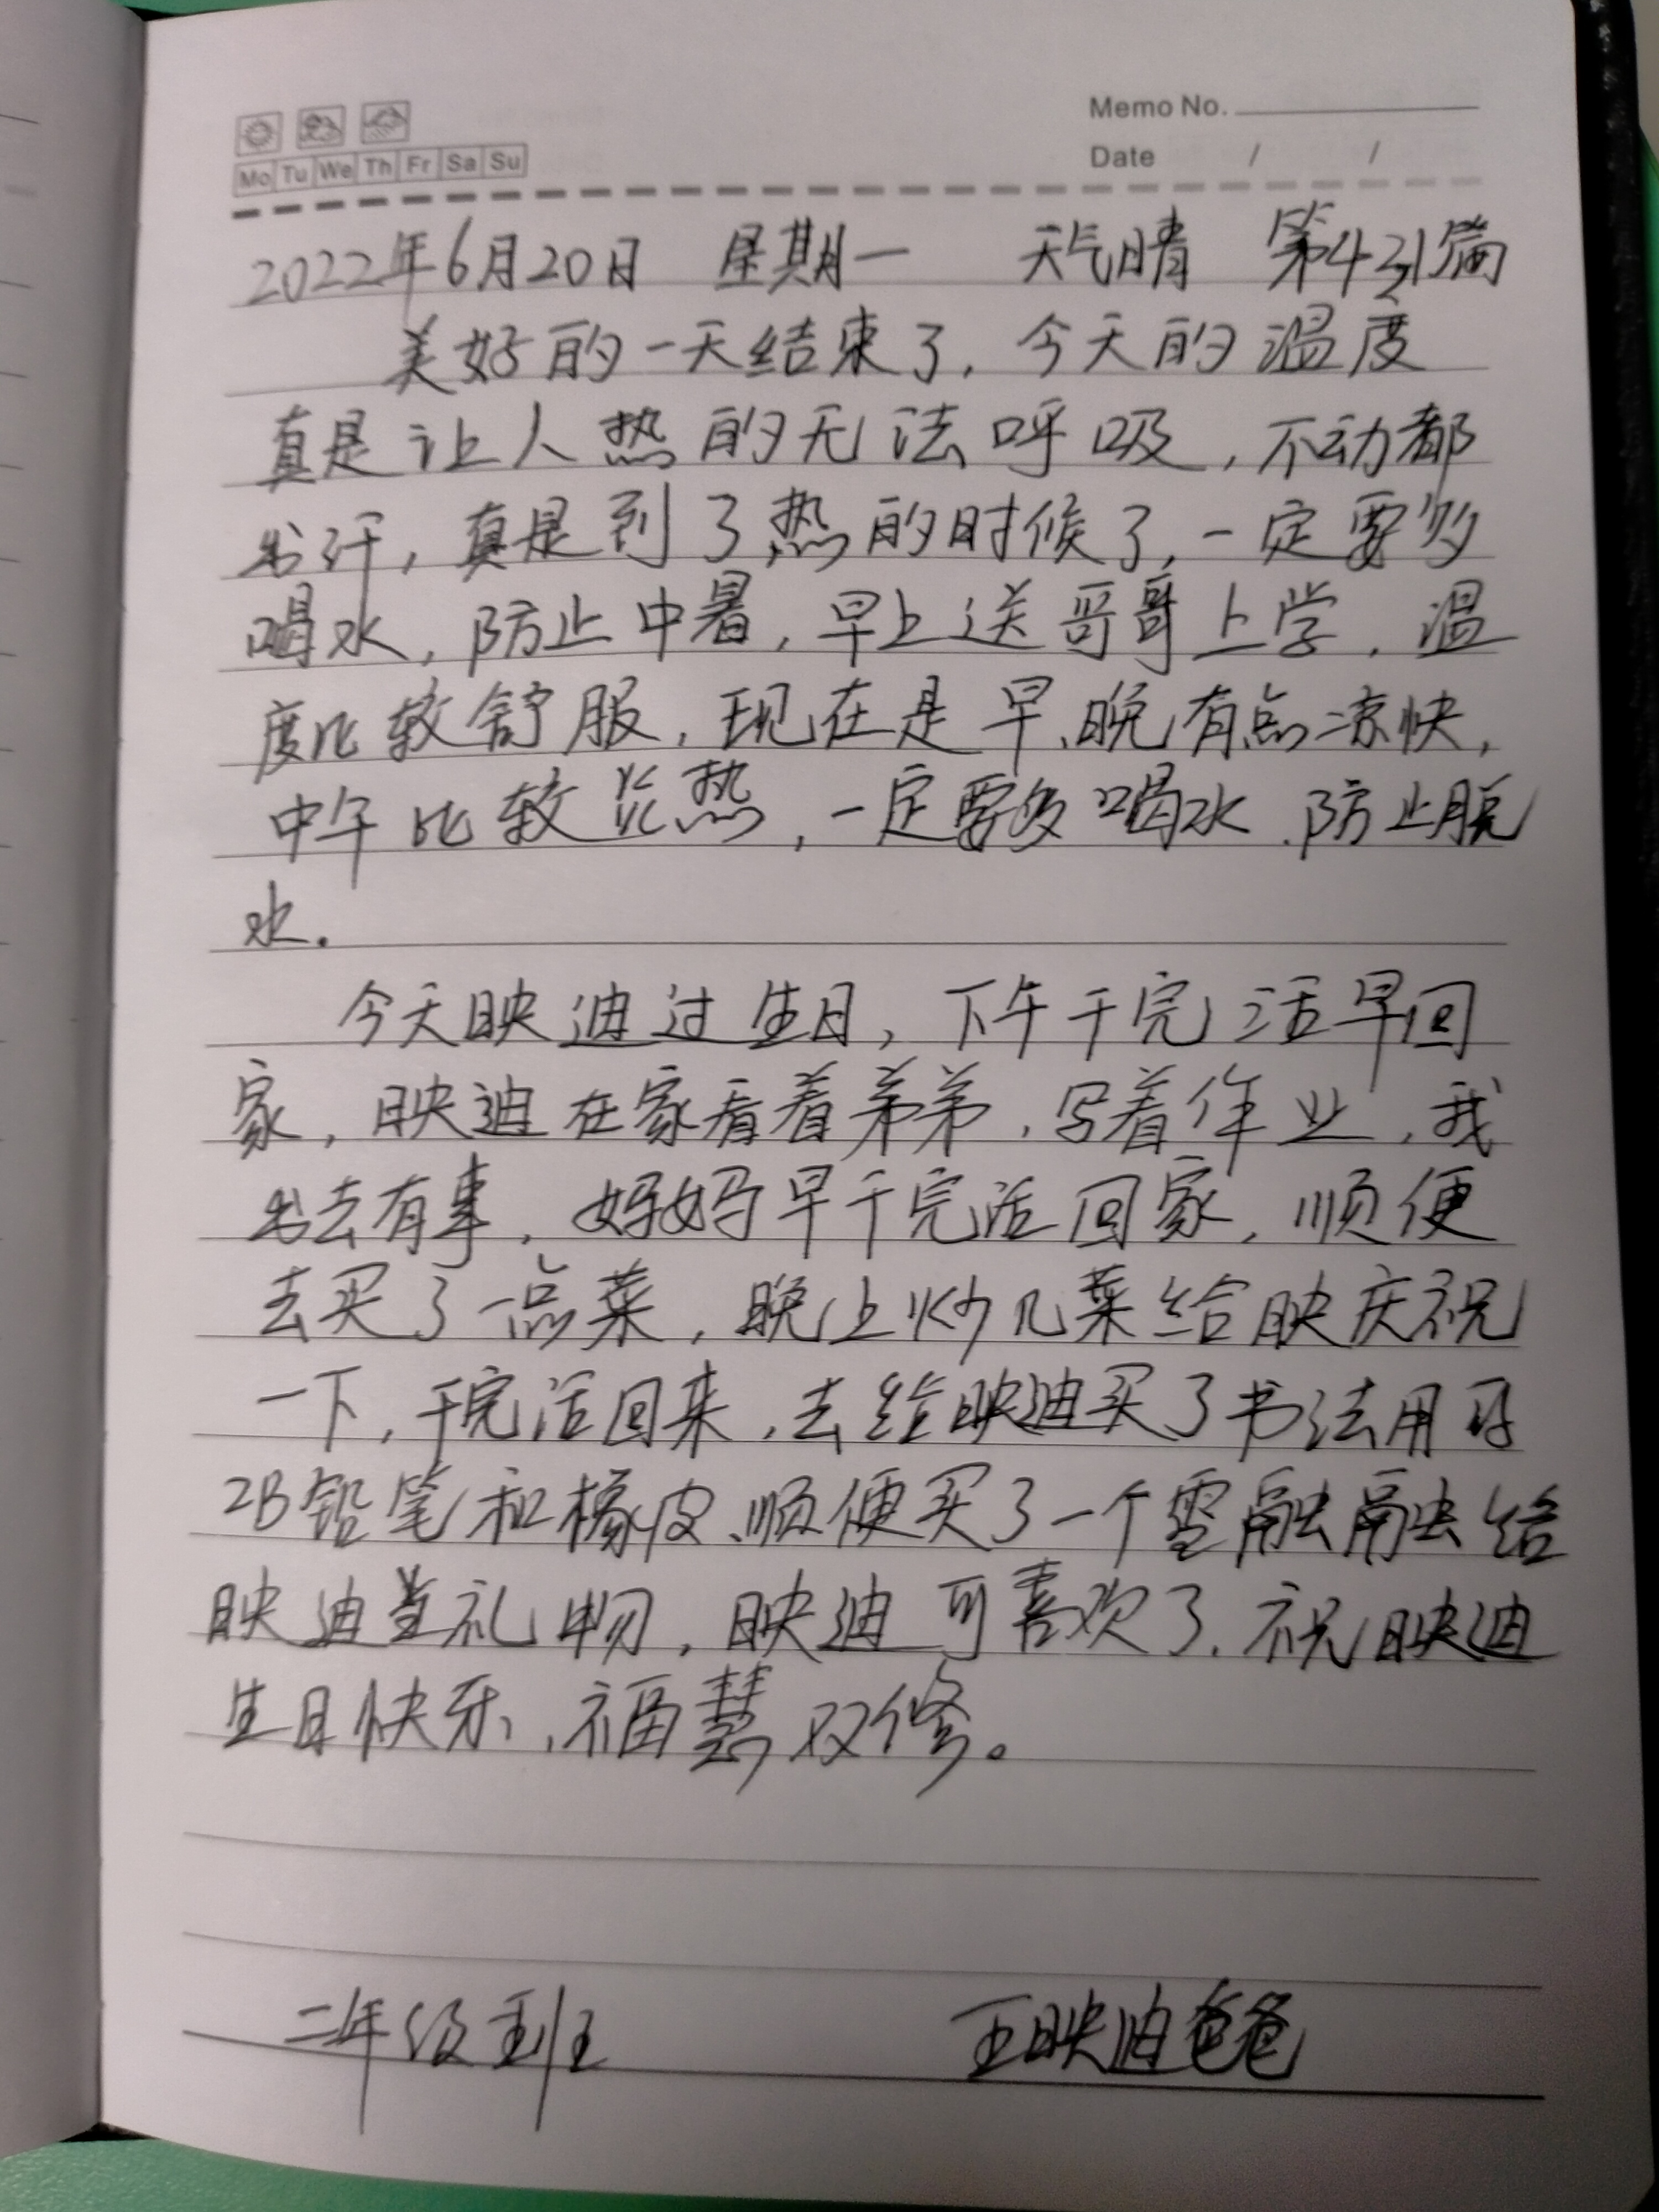 Memo No.
Mo Tu We Th Fr Sa Su
Date / /
2022年6月20日 星期一 天气晴 第431篇
美好的一天结束了，今天的温度
真是让人热的无法呼吸，不动都
出汗，真是到了热的时候了，一定要多
喝水，防止中暑，早上送哥哥上学，温
度比较舒服，现在是早、晚有点凉快，
中午比较炎热，一定要多喝水、防止脱
水.
今天映迪过生日，下午干完活早回
家，映迪在家看着弟弟，写着作业，我
出去有事，妈妈早干完活回家，顺便
去买了一点菜，晚上炒几菜给映庆祝
一下，干完活回来，去给映迪买了书法用
2B铅笔和橡皮、顺便买了一个雪融融给
映迪当礼物，映迪可喜欢了.祝映迪
生日快乐、福慧双修。
二年级班
王映迪爸爸